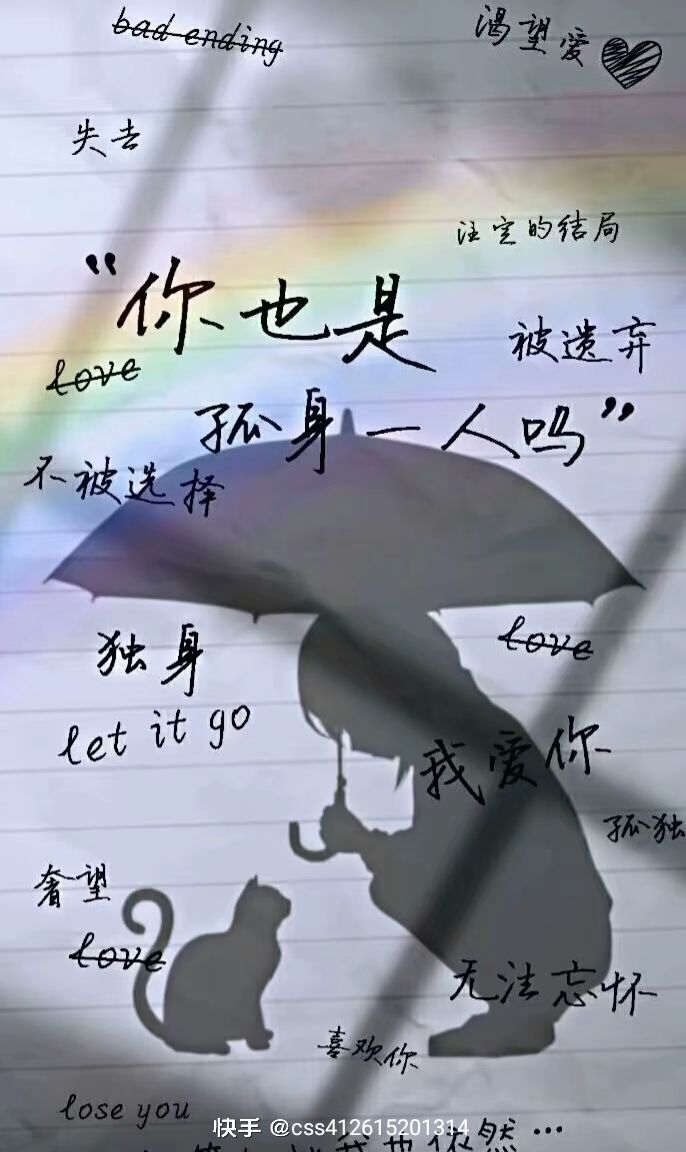 bad ending
渴望爱
失去
注定的结局
“你也是
被遗弃
love
孤身一人吗”
不被选择
独身
love
let it go
我爱你
孤独
奢望
love
无法忘怀
喜欢你
lose you
快手 @css412615201314
依然…